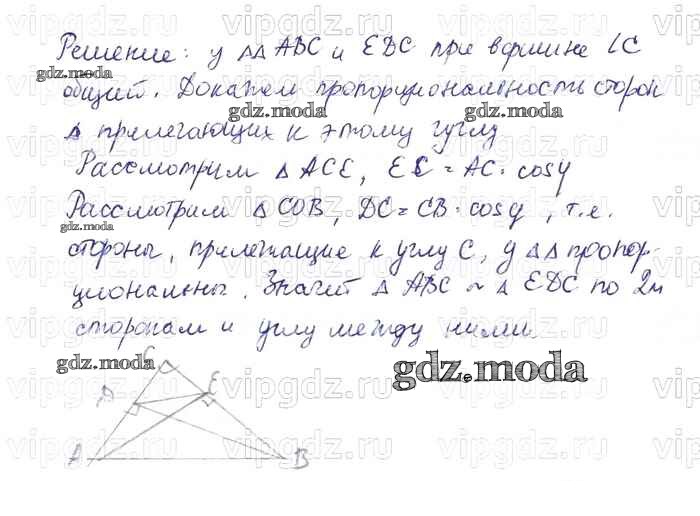 Решение: у ΔΔ ABC и EDC при вершине ∠C
общий. Докажем пропорциональность сторон
Δ прилегающих к этому углу
Рассмотрим Δ ACE, EC = AC · cosγ
Рассмотрим Δ COB, DC = CB · cosγ, т.е.
стороны, прилежащие к углу C, у ΔΔ пропор-
циональны. Значит Δ ABC ~ Δ EDC по 2м
сторонам и углу между ними.
C
D E
A B
gdz.moda
gdz.moda
gdz.moda
gdz.moda
gdz.moda
gdz.moda
vipgdz.ru